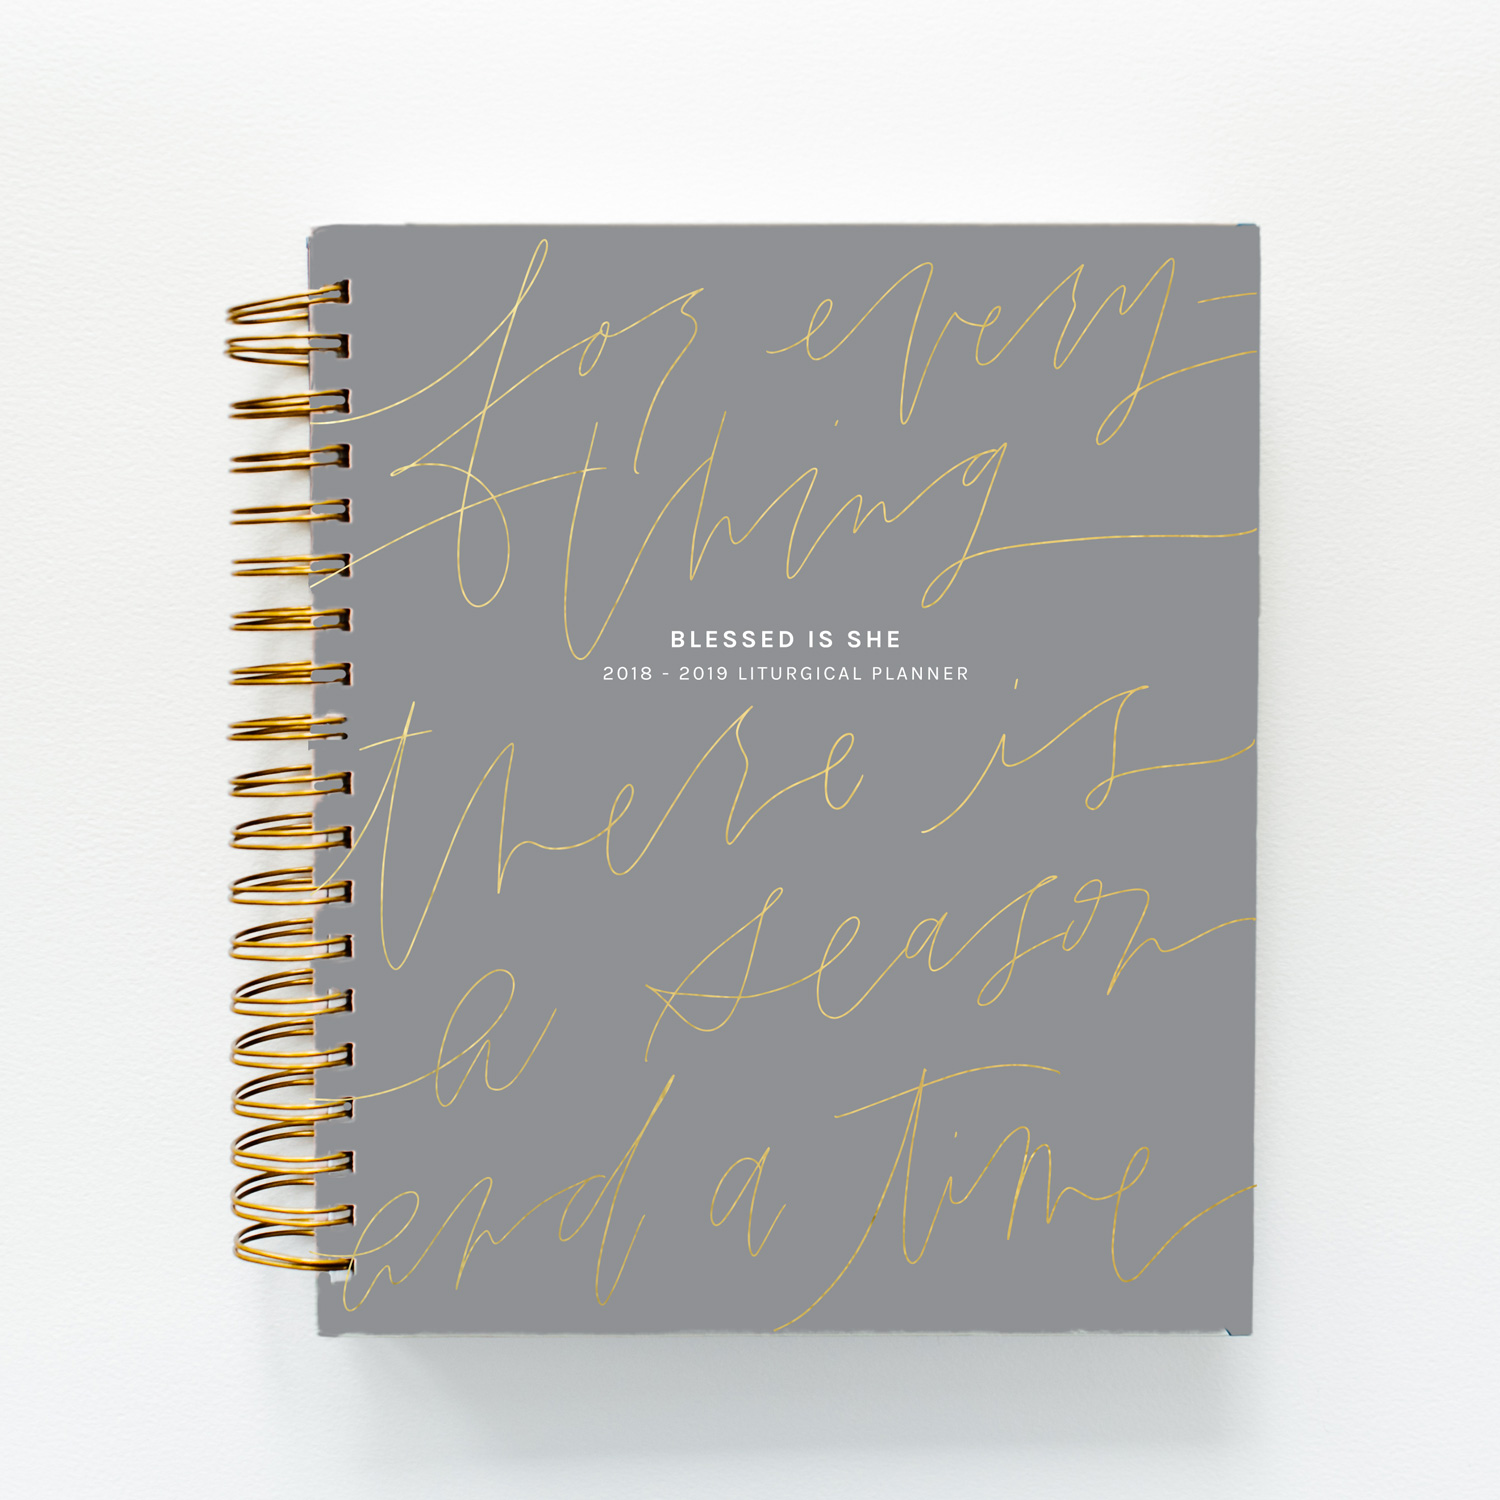 for every-
thing
BLESSED IS SHE
2018 - 2019 LITURGICAL PLANNER
there is
a season
and a time